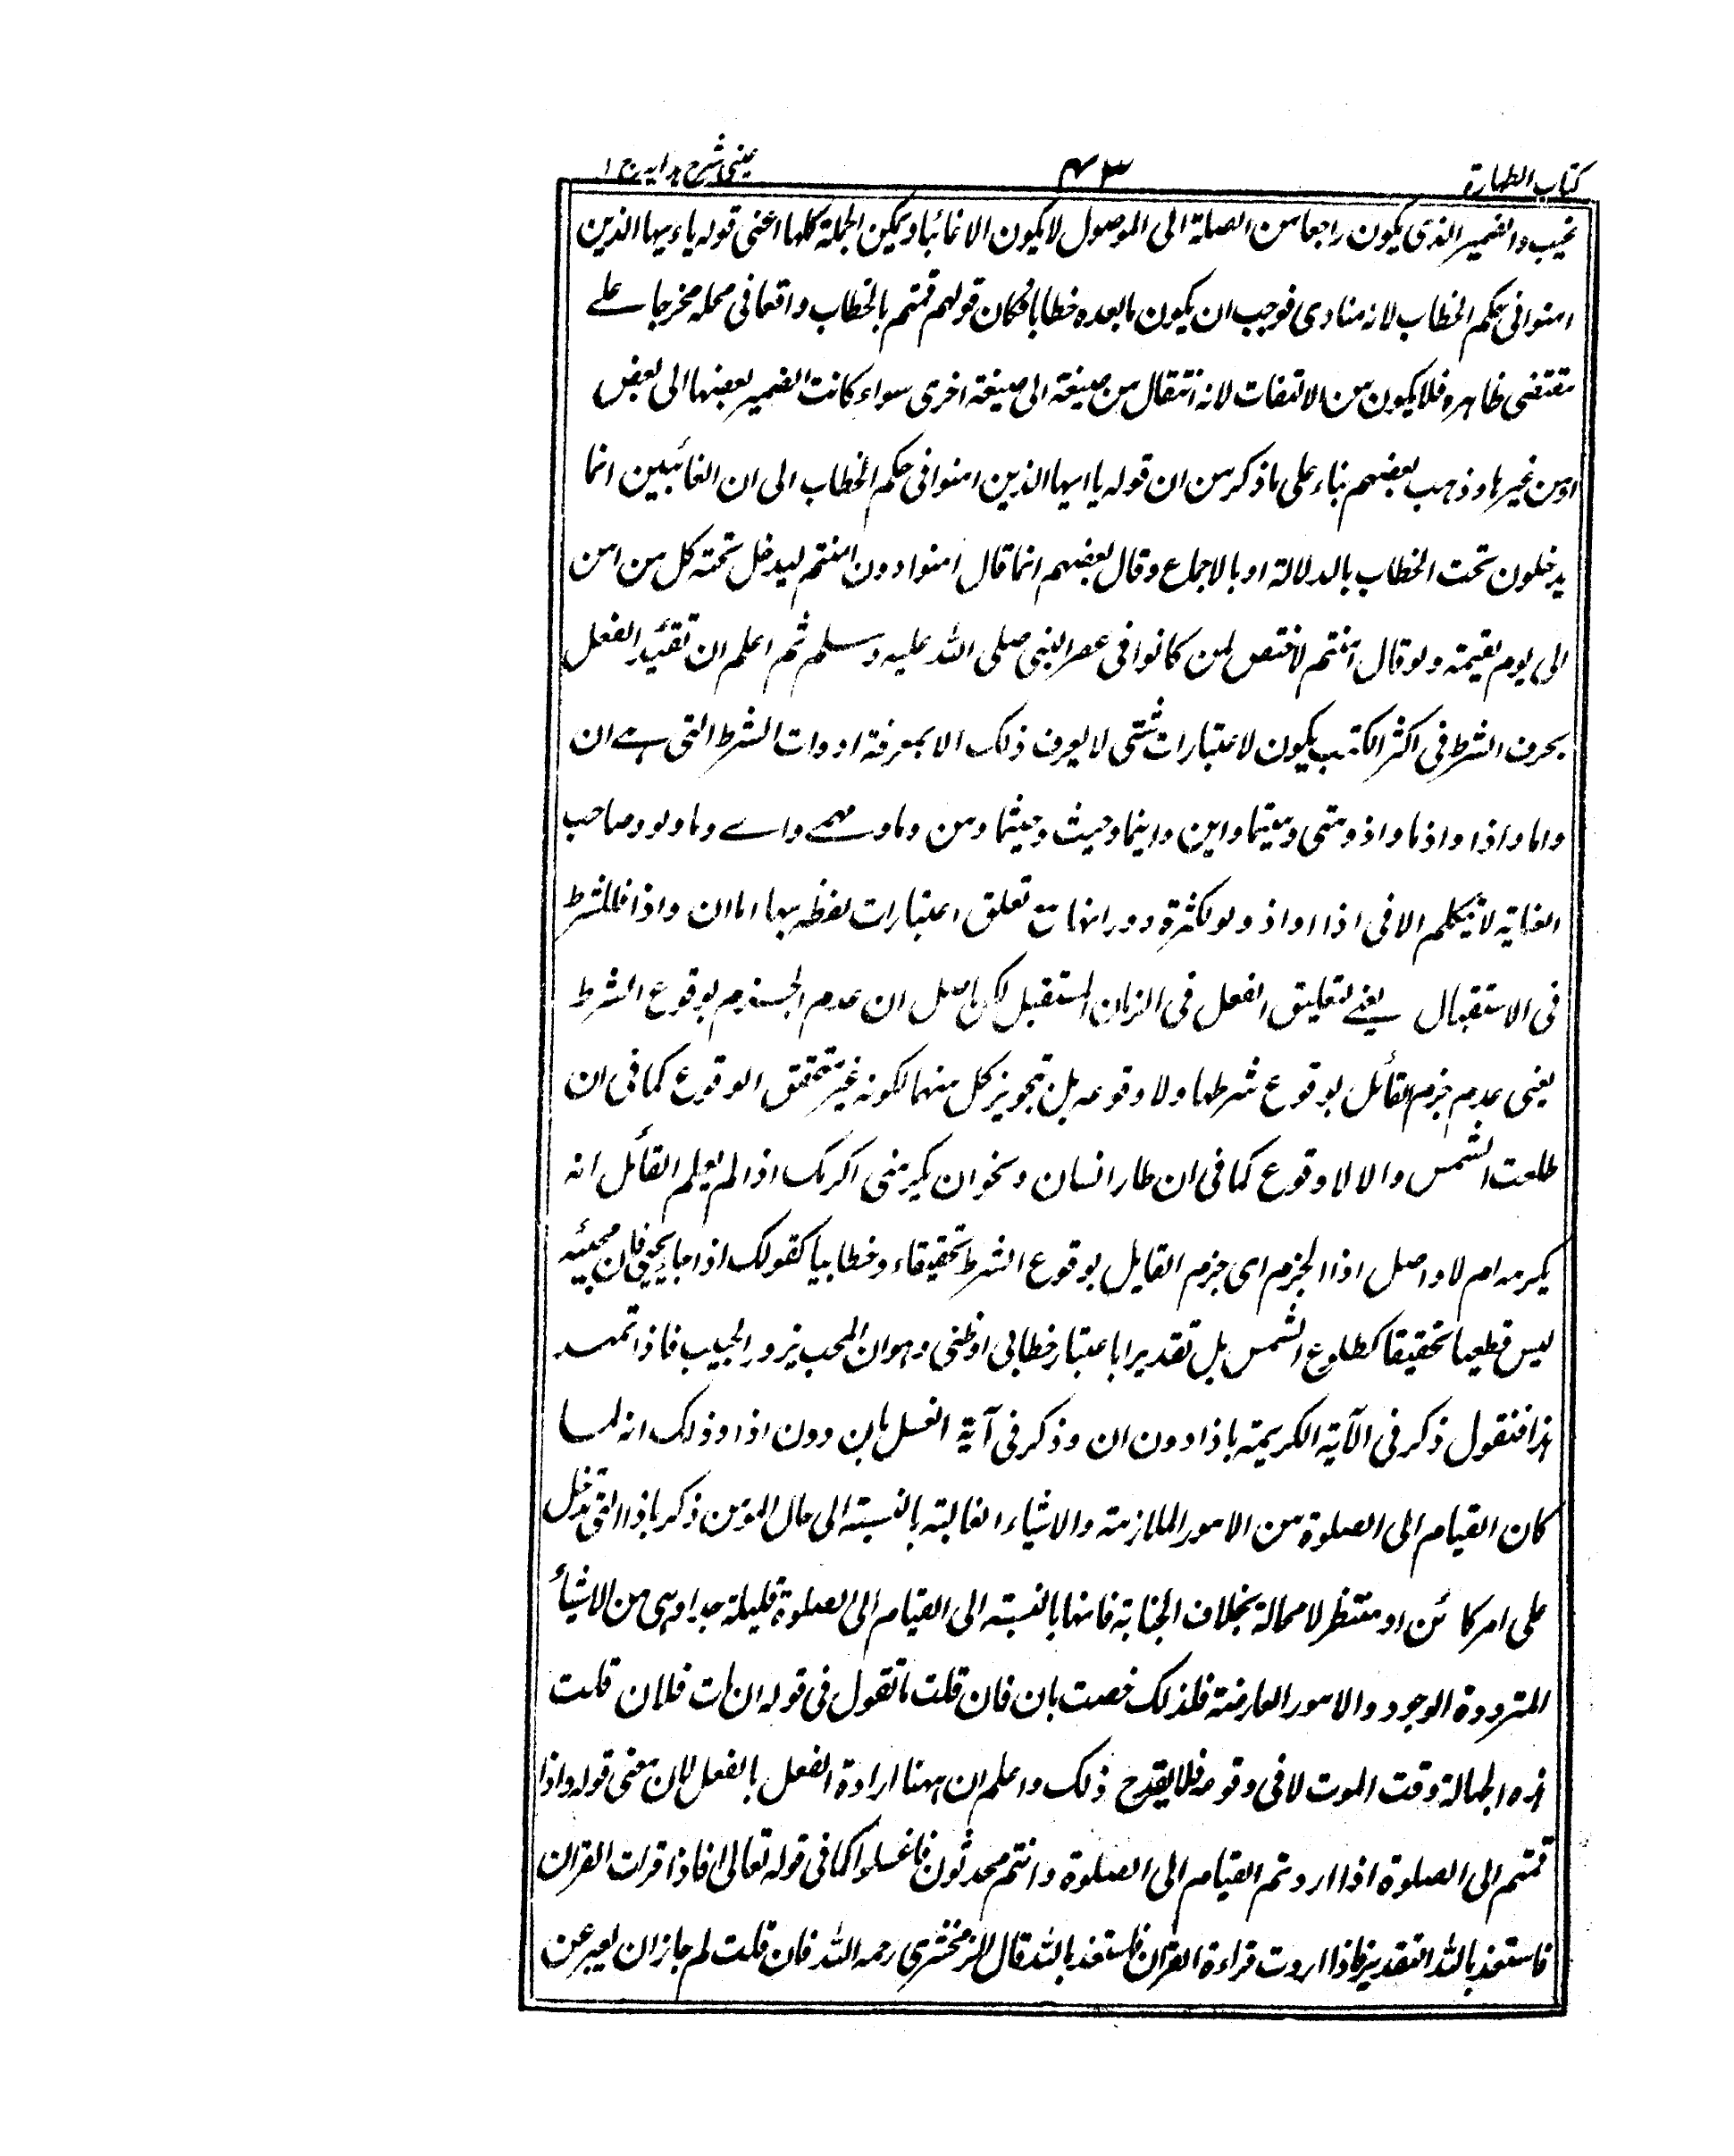 كتاب الطهارة
٤٣
عينى شرح هدايه ج ١
غيب والضمير الذى يكون راجعا من الصلة الى الموصول لا يكون الا غائبا ويكمن الجملة كلها اعنى قوله ياءيها الذين
امنوا فى حكم الخطاب لانه منادى فوجب ان يكون ما بعده خطابا فكان قولهم قمتم بالخطاب واقعا فى محله مخرجا على
مقتضى ظاهره فلا يكون من الالتفات لانه انتقال من صيغة الى صيغة اخرى سواء كانت الضمير بعضها الى بعض
او من غيرها وذهب بعضهم بناء على ما ذكر من ان قوله يا ايها الذين امنوا فى حكم الخطاب الى ان الغائبين انما
يدخلون تحت الخطاب بالدلالة او بالاجماع وقال بعضهم انما قال امنوا دون امنتم ليدخل تحته كل من امن
الى يوم القيمة ولو قال امنتم لاختص لمن كانوا فى عصر النبى صلى الله عليه وسلم ثم اعلم ان تقئيد الفعل
بحرف الشرط فى اكثر الكتب يكون لاعتبارات شتى لا يعرف ذلك الا بمعرفة ادوات الشرط التى هے ان
واما واذا واذما واذ ومتى ومتيما واين واينما وحيث وحيثما ومن وما ومهمے واے وما ولو وصاحب
الغاية لا يتكلم الا فى اذا او اذ ولو لكثرة دورانها تعلق اعتبارات لفظه بها اما ان واذا فللشرط
فى الاستقبال يعنے لتعليق الفعل فى الزمان المستقبل لكن اصل ان عدم الجزم بوقوع الشرط
يعنى عدم جزم القائل بوقوع شرطها ولا وقوعه بل تجويز كل منهما لكونه غير متحقق الوقوع كما فى ان
طلعت الشمس والا لا وقوع كما فى ان طار انسان ونحو ان يكرمنى اكرمك اذا لم يعلم القائل انه
يكرمه ام لا واصل اذا الجزم اى جزم القايل بوقوع الشرط تحقيقاء وخطابيا كقولك اذا جاء يحيى فان مجيئه
ليس قطعيا تحقيقا كطلوع الشمس بل تقديرا باعتبار خطابى او ظنى وهو ان المحب يزور الحبيب فاذا تمهد
هذا فنقول ذكر فى الآية الكريمة باذا دون ان وذكر فى آية الغسل بان دون اذا وذلك انه لما
كان القيام الى الصلوة من الامور الملازمة والاشياء الغالبة بالنسبة الى حال المؤمن ذكر باذا التى تدخل
على امر كائن او منتظر لا محالة بخلاف الجنابة فانها بالنسبة الى القيام الى الصلوة قليلة جدا وهى من الاشياء
المترددة الوجود والامور العارضة فلذلك خصت بان فان قلت ما تقول فى قوله ان مات فلان قلت
هذه الجهالة وقت الموت لا فى وقوعه فلا يقدح ذلك واعلم ان ههنا ارادة الفعل بالفعل لان معنى قوله واذا
قمتم الى الصلوة اذا اردتم القيام الى الصلوة وانتم محدثون فاغسلوا كما فى قوله تعالى فاذا قرات القران
فاستعذ بالله التقدير فاذا اردت قراءة القران فاستعذ بالله قال الزمخشرى رحمه الله فان قلت لم جاز ان يعبر عن